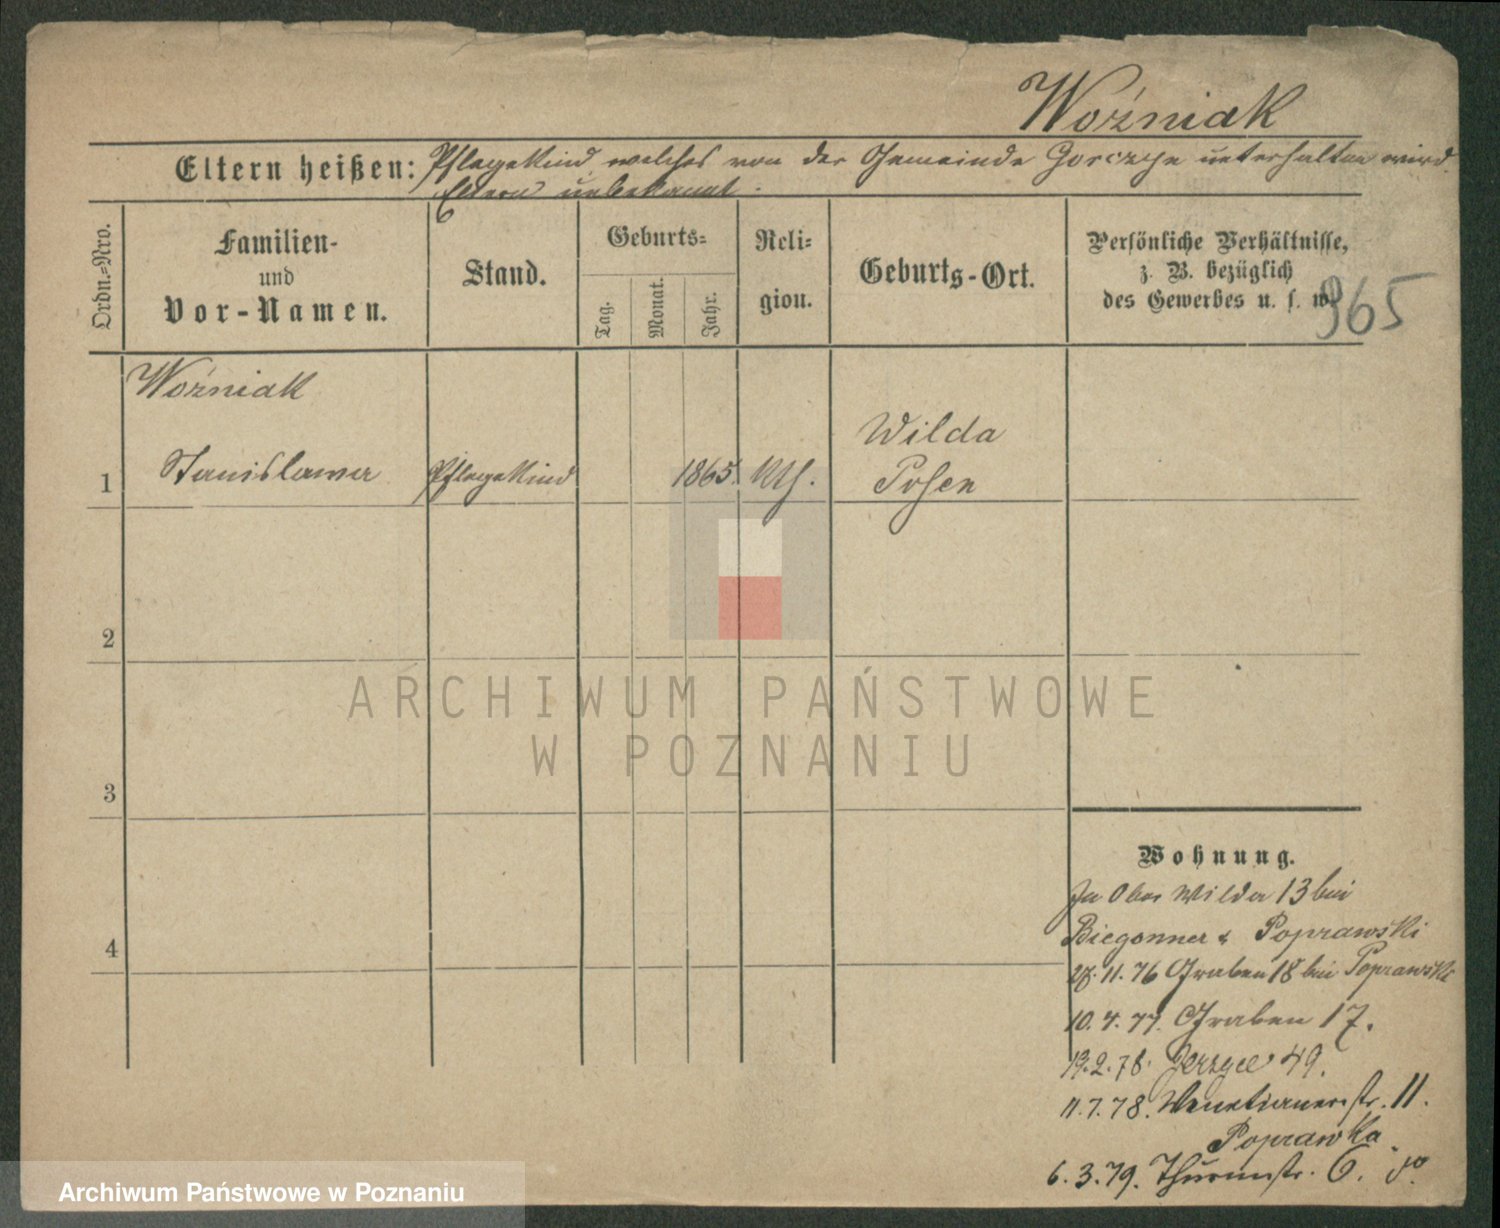 Woźniak
Eltern heißen: Pflegekind welches von der Gemeinde Gorczyn unterhalten wird.
Eltern unbekannt.
Ordn.=Nro.
Familien-
und
Vor-Namen.
Stand.
Geburts=
Tag.
Monat.
Jahr.
Reli=
gion.
Geburts-Ort.
Persönliche Verhältnisse,
z. B. bezüglich
des Gewerbes u. s. w.
965
Woźniak
1 Stanislawa Pflegekind 1865. Kth. Wilda
Posen
2
3
4
ARCHIWUM PAŃSTWOWE
W POZNANIU
Wohnung.
Ober Wilda 13 bei
Biegonner & Poprawski
11. 76 Graben 18 bei Poprawski
10. 4. 77. Graben 17.
2. 78. 49.
11. 7. 78. Venetianerstr. 11.
Poprawka
6. 3. 79. Thurmstr. 6.
Archiwum Państwowe w Poznaniu